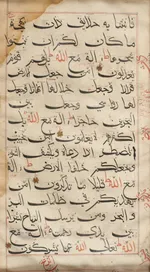 فانبتنا به حدائق ذات بهجة
ما كان لكم ان تنبتوا
شجرها اله مع الله بل هم
قوم يعدلون امن جعل الارض
قرارا وجعل خلالها انهارا وجعل
لها رواسي وجعل بين
البحرين حاجزا اله مع الله بل
اكثرهم لا يعلمون امن يجيب
المضطر اذا دعاه ويكشف السوء
ويجعلكم خلفاء الارض اله
مع الله قليلا ما تذكرون امن
يهديكم في ظلمات البر
والبحر ومن يرسل الرياح بشرا
بين يدي رحمته اله مع
الله تعالى الله عما يشركون